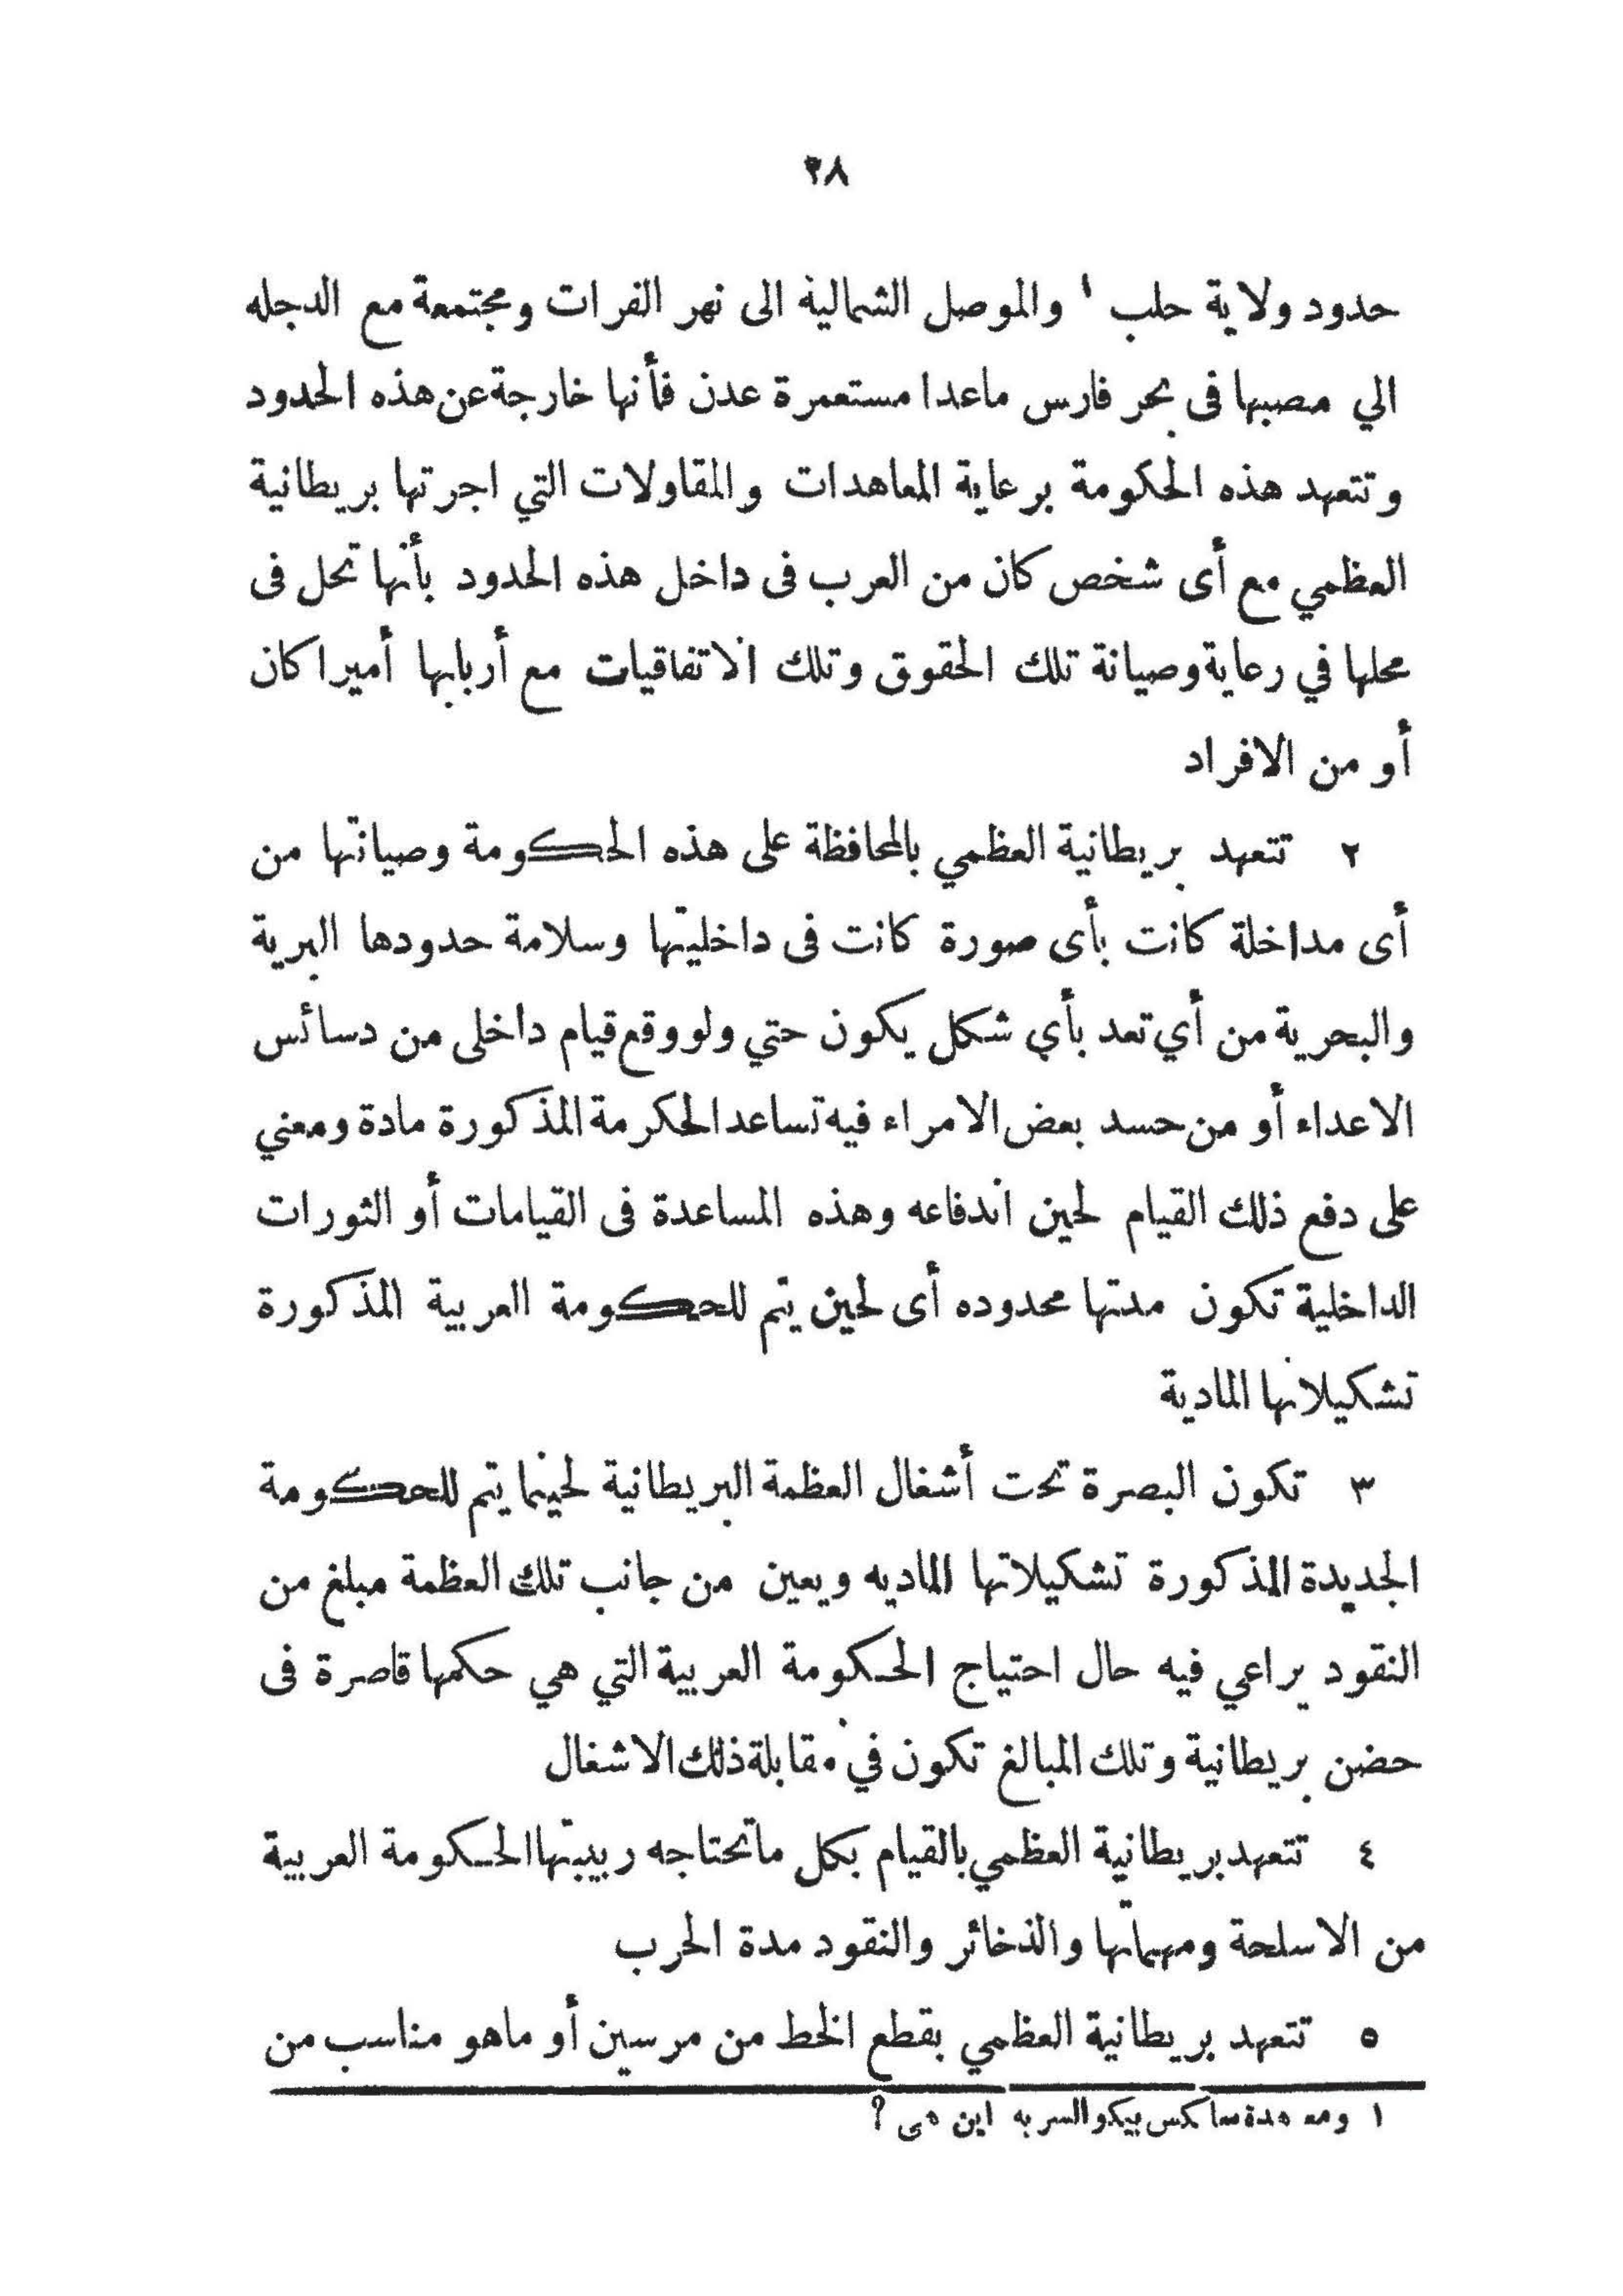 ٣٨
حدود ولاية حلب ١ والموصل الشمالية الى نهر الفرات ومجتمعة مع الدجله
الي مصبها فى بحر فارس ماعدا مستعمرة عدن فأنها خارجة عن هذه الحدود
وتتعهد هذه الحكومة برعاية المعاهدات والمقاولات التي اجرتها بريطانية
العظمي مع أى شخص كان من العرب فى داخل هذه الحدود بأنها تحل فى
محلها في رعاية وصيانة تلك الحقوق وتلك الاتفاقيات مع أربابها أميرا كان
أو من الافراد
٢ تتعهد بريطانية العظمي بالمحافظة على هذه الحكومة وصيانتها من
أى مداخلة كانت بأى صورة كانت فى داخليتها وسلامة حدودها البرية
والبحرية من أي تعد بأي شكل يكون حتي ولو وقع قيام داخلى من دسائس
الاعداء أو من حسد بعض الامراء فيه تساعد الحكرمة المذكورة مادة ومعني
على دفع ذلك القيام لحين اندفاعه وهذه المساعدة فى القيامات أو الثورات
الداخلية تكون مدتها محدوده أى لحين يتم للحكومة العربية المذكورة
تشكيلاتها المادية
٣ تكون البصرة تحت أشغال العظمة البريطانية لحينما يتم للحكومة
الجديدة المذكورة تشكيلاتها الماديه ويعين من جانب تلك العظمة مبلغ من
النقود يراعي فيه حال احتياج الحكومة العربية التي هي حكمها قاصرة فى
حضن بريطانية وتلك المبالغ تكون في مقابلة ذلك الاشغال
٤ تتعهد بريطانية العظمي بالقيام بكل ماتحتاجه ربيبتها الحكومة العربية
من الاسلحة ومهماتها والذخائر والنقود مدة الحرب
٥ تتعهد بريطانية العظمي بقطع الخط من مرسين أو ماهو مناسب من
١ ومعاهدة سايكس بيكو السريه اين هى ؟